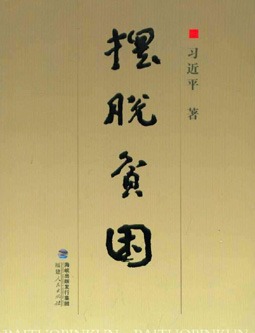 摆脱贫困
习近平 著
海峡出版发行集团
福建人民出版社
BAITUOPINKUN